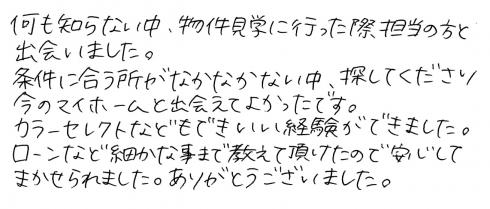 何も知らない中、物件見学に行った際担当の方と
出会いました。
条件に合う所がなかなかない中、探してくださり
今のマイホームと出会えてよかったです。
カラーセレクトなどもできいい経験ができました。
ローンなど細かな事まで教えて頂けたので安心して
まかせられました。ありがとうございました。